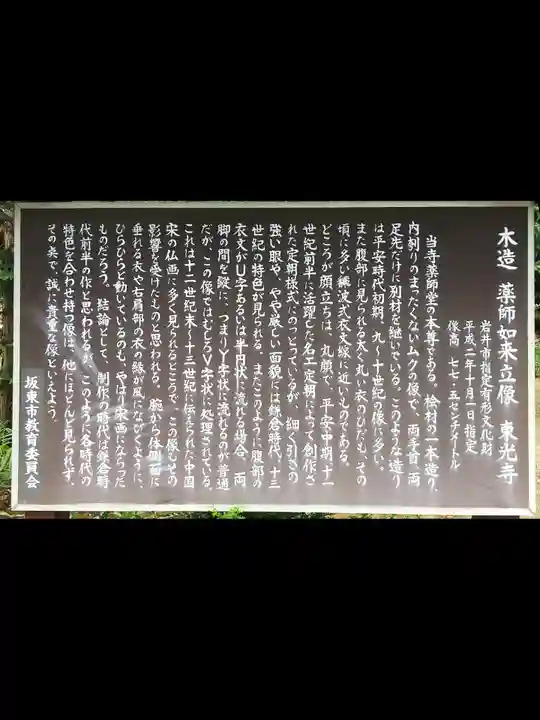 木造 薬師如来立像 東光寺
岩井市指定有形文化財
平成二年十月一日指定
像高 七七・五センチメートル
当寺薬師堂の本尊である。桧材の一本造り、
内刳りのまったくないムクの像で、両手首、両
足先だけに別材を継いでいる。このような造り
は平安時代初期、九〜十世紀の像に多い。
また腹部に見られる太く丸い衣のひだも、その
頃に多い翻波式衣文線に近いものである。
どころが顔立ちは、丸顔で、平安中期、十一
世紀前半に活躍した名工・定朝によって創作さ
れた定朝様式にのっとっているが、細く引きの
強い眼や、やや厳しい面貌には鎌倉時代、十三
世紀の特色が見られる。またこのように腹部の
衣文がU字あるいは半円状に流れる場合、両
脚の間を縦に、つまりY字状に流れるのが普通
だが、この像ではむしろV字状に処理されている。
これは十二世紀末〜十三世紀に伝えられた中国
宋の仏画に多く見られるところで、この像もその
影響を受けたものと思われる。腕から体側面に
垂れる衣や右肩部の衣の縁が風になびくように、
ひらひらと動いているのも、やはり宋画にならった
ものだろう。結論として、制作の時代は鎌倉時
代前半の作と思われるが、このように各時代の
特色を合わせ持つ像は、他にほとんど見られず、
その点で、誠に貴重な像といえよう。
坂東市教育委員会